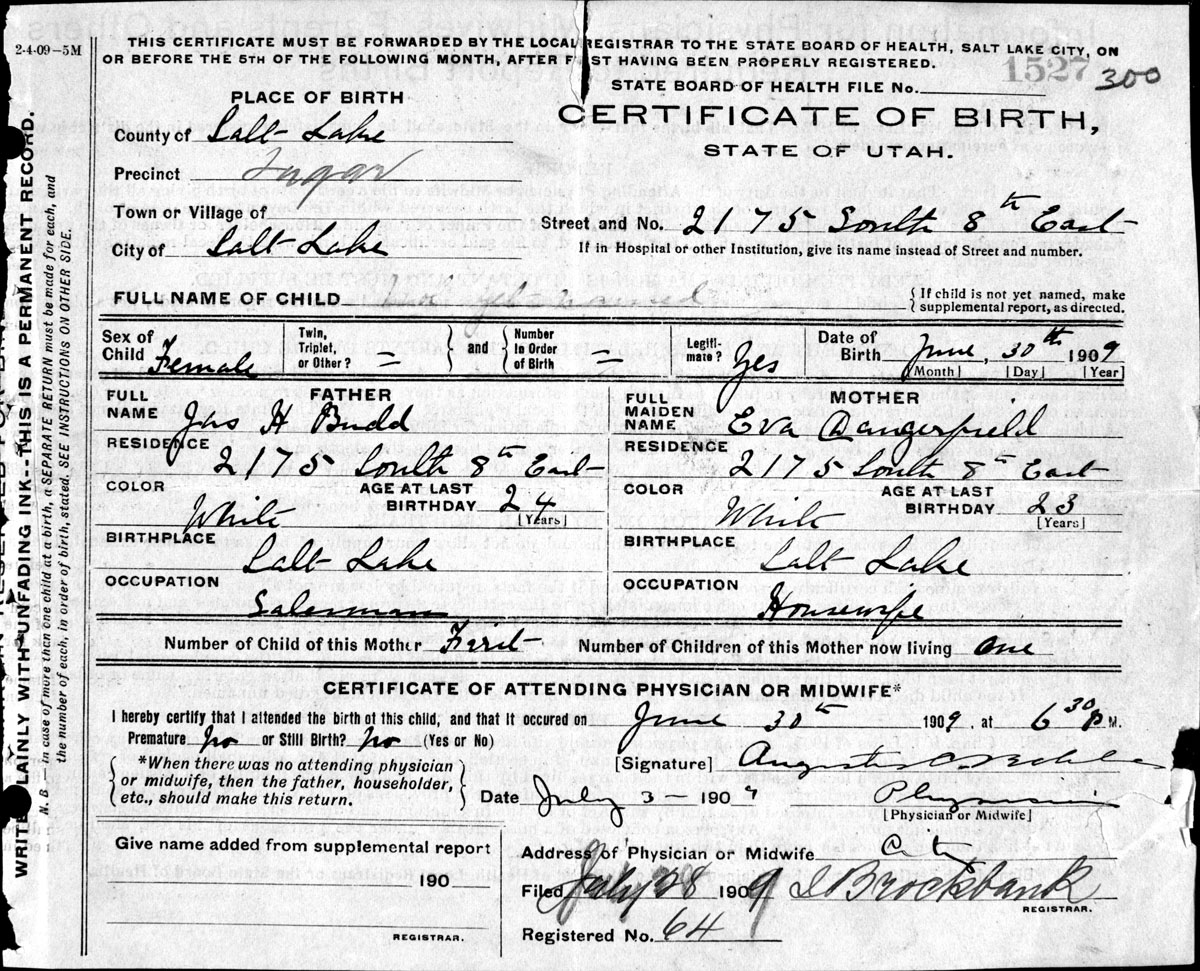 2-4-09-5M
THIS CERTIFICATE MUST BE FORWARDED BY THE LOCAL REGISTRAR TO THE STATE BOARD OF HEALTH, SALT LAKE CITY, ON
OR BEFORE THE 5TH OF THE FOLLOWING MONTH, AFTER FIRST HAVING BEEN PROPERLY REGISTERED.
1527 300
STATE BOARD OF HEALTH FILE No.
PLACE OF BIRTH
CERTIFICATE OF BIRTH,
STATE OF UTAH.
County of Salt Lake
Precinct Sugar
Town or Village of
Street and No. 2175 South 8th East
City of Salt Lake
If in Hospital or other Institution, give its name instead of Street and number.
FULL NAME OF CHILD not yet named
{If child is not yet named, make
supplemental report, as directed.
Sex of Child Female
Twin, Triplet, or Other? =
and
Number in Order of Birth =
Legitimate? Yes
Date of Birth June, 30th 1909
[Month] [Day] [Year]
FATHER
FULL NAME Jas H Budd
RESIDENCE 2175 South 8th East
COLOR White
AGE AT LAST BIRTHDAY 24
[Years]
BIRTHPLACE Salt Lake
OCCUPATION Salesman
MOTHER
FULL MAIDEN NAME Eva Dangerfield
RESIDENCE 2175 South 8th East
COLOR White
AGE AT LAST BIRTHDAY 23
[Years]
BIRTHPLACE Salt Lake
OCCUPATION Housewife
Number of Child of this Mother First Number of Children of this Mother now living One
CERTIFICATE OF ATTENDING PHYSICIAN OR MIDWIFE*
I hereby certify that I attended the birth of this child, and that it occured on June 30th 1909, at 6 30 P M.
Premature No or Still Birth? No (Yes or No)
*When there was no attending physician
or midwife, then the father, householder,
etc., should make this return.
[Signature]
Date July 3 - 1909 Physician
[Physician or Midwife]
Give name added from supplemental report
190
REGISTRAR.
Address of Physician or Midwife City
Filed July 28 1909 Brockbank
REGISTRAR.
Registered No. 64
WRITE PLAINLY WITH UNFADING INK--THIS IS A PERMANENT RECORD.
N. B.-In case of more than one child at a birth, a SEPARATE RETURN must be made for each, and
the number of each, in order of birth, stated. SEE INSTRUCTIONS ON OTHER SIDE.